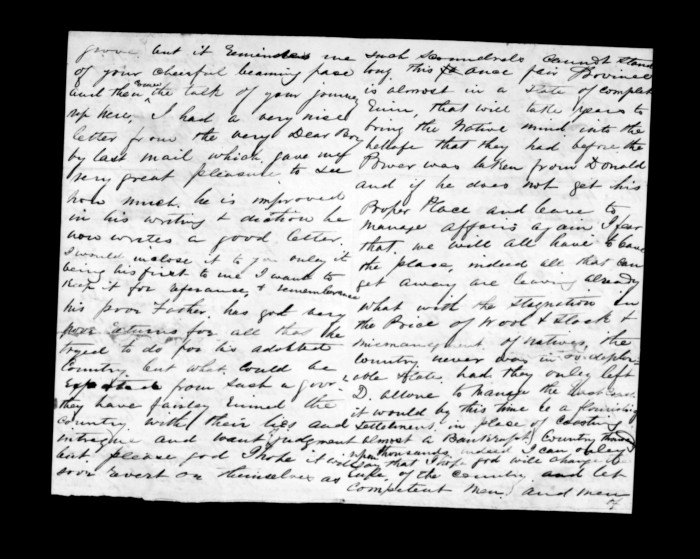 grove but it Emindes me
of your cheerful beaming face
and then the talk of your journey
up here, I had a very nice
letter from the very Dear Boy
by last mail which gave me
very great pleasure to see
how much he is improved
in his writing & diction he
now writes a good letter.
I would inclose it to you only it
being his first to me I want to
keep it for referance, & remembrance
his poor Father, has got very
poor returns for all that he
tryed to do for his adopted
Country but what could be
Expected from such a govr.
they have fairley Euined the
country with their lies and
intregue and want of judgment
but please god I hope it will
soon Revert on themselves as
such scoundrels cannot stand
long this once fair Province
is almost in a state of complet
Euin, that will take years to
bring the Native mind into the
state that they had before the
Power was taken from Donald
and if he does not get his
Proper Place and leave to
manage affairs again I fear
that we will all have to leave
the place, indeed all that can
get away are leaving already
what with the stagnation in
the Price of Wool & Stock &
mismanagment of natives, the
Country never was in so deplor
able state. had they only left
D. allone to manage the East Coast
it would by this time be a flourishing
settlement, in place of costing
almost a Bankrupt Country thousands
upon thousands indeed I can only
say that I hope god will change the
rule, of the country and let
competent men, and men
of